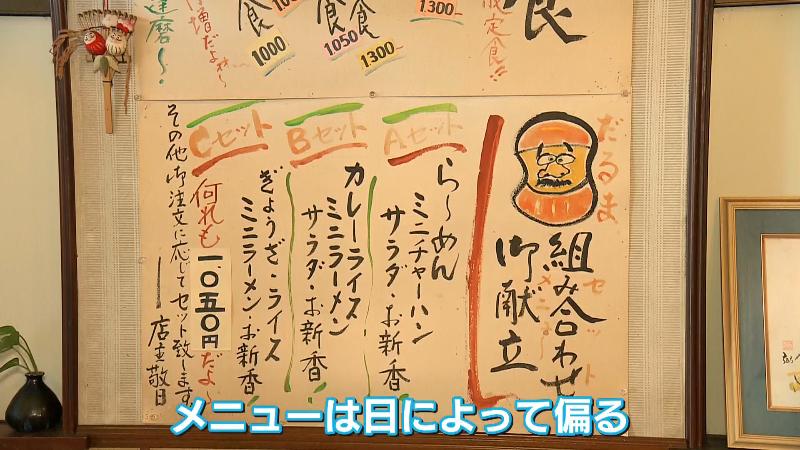 食
限定食!!
1300
食
食
1050
1300
食
1000
達磨〜
だるま
組み合わせ
御献立
セット
メニュー
Aセット
らーめん
ミニチャーハン
サラダ・お新香
Bセット
カレーライス
ミニラーメン
サラダ・お新香
Cセット
ぎょうざ・ライス
ミニラーメン・お新香
何れも一、〇五〇円だよ
その他御注文に応じてセット致します。
店主敬白
メニューは日によって偏る